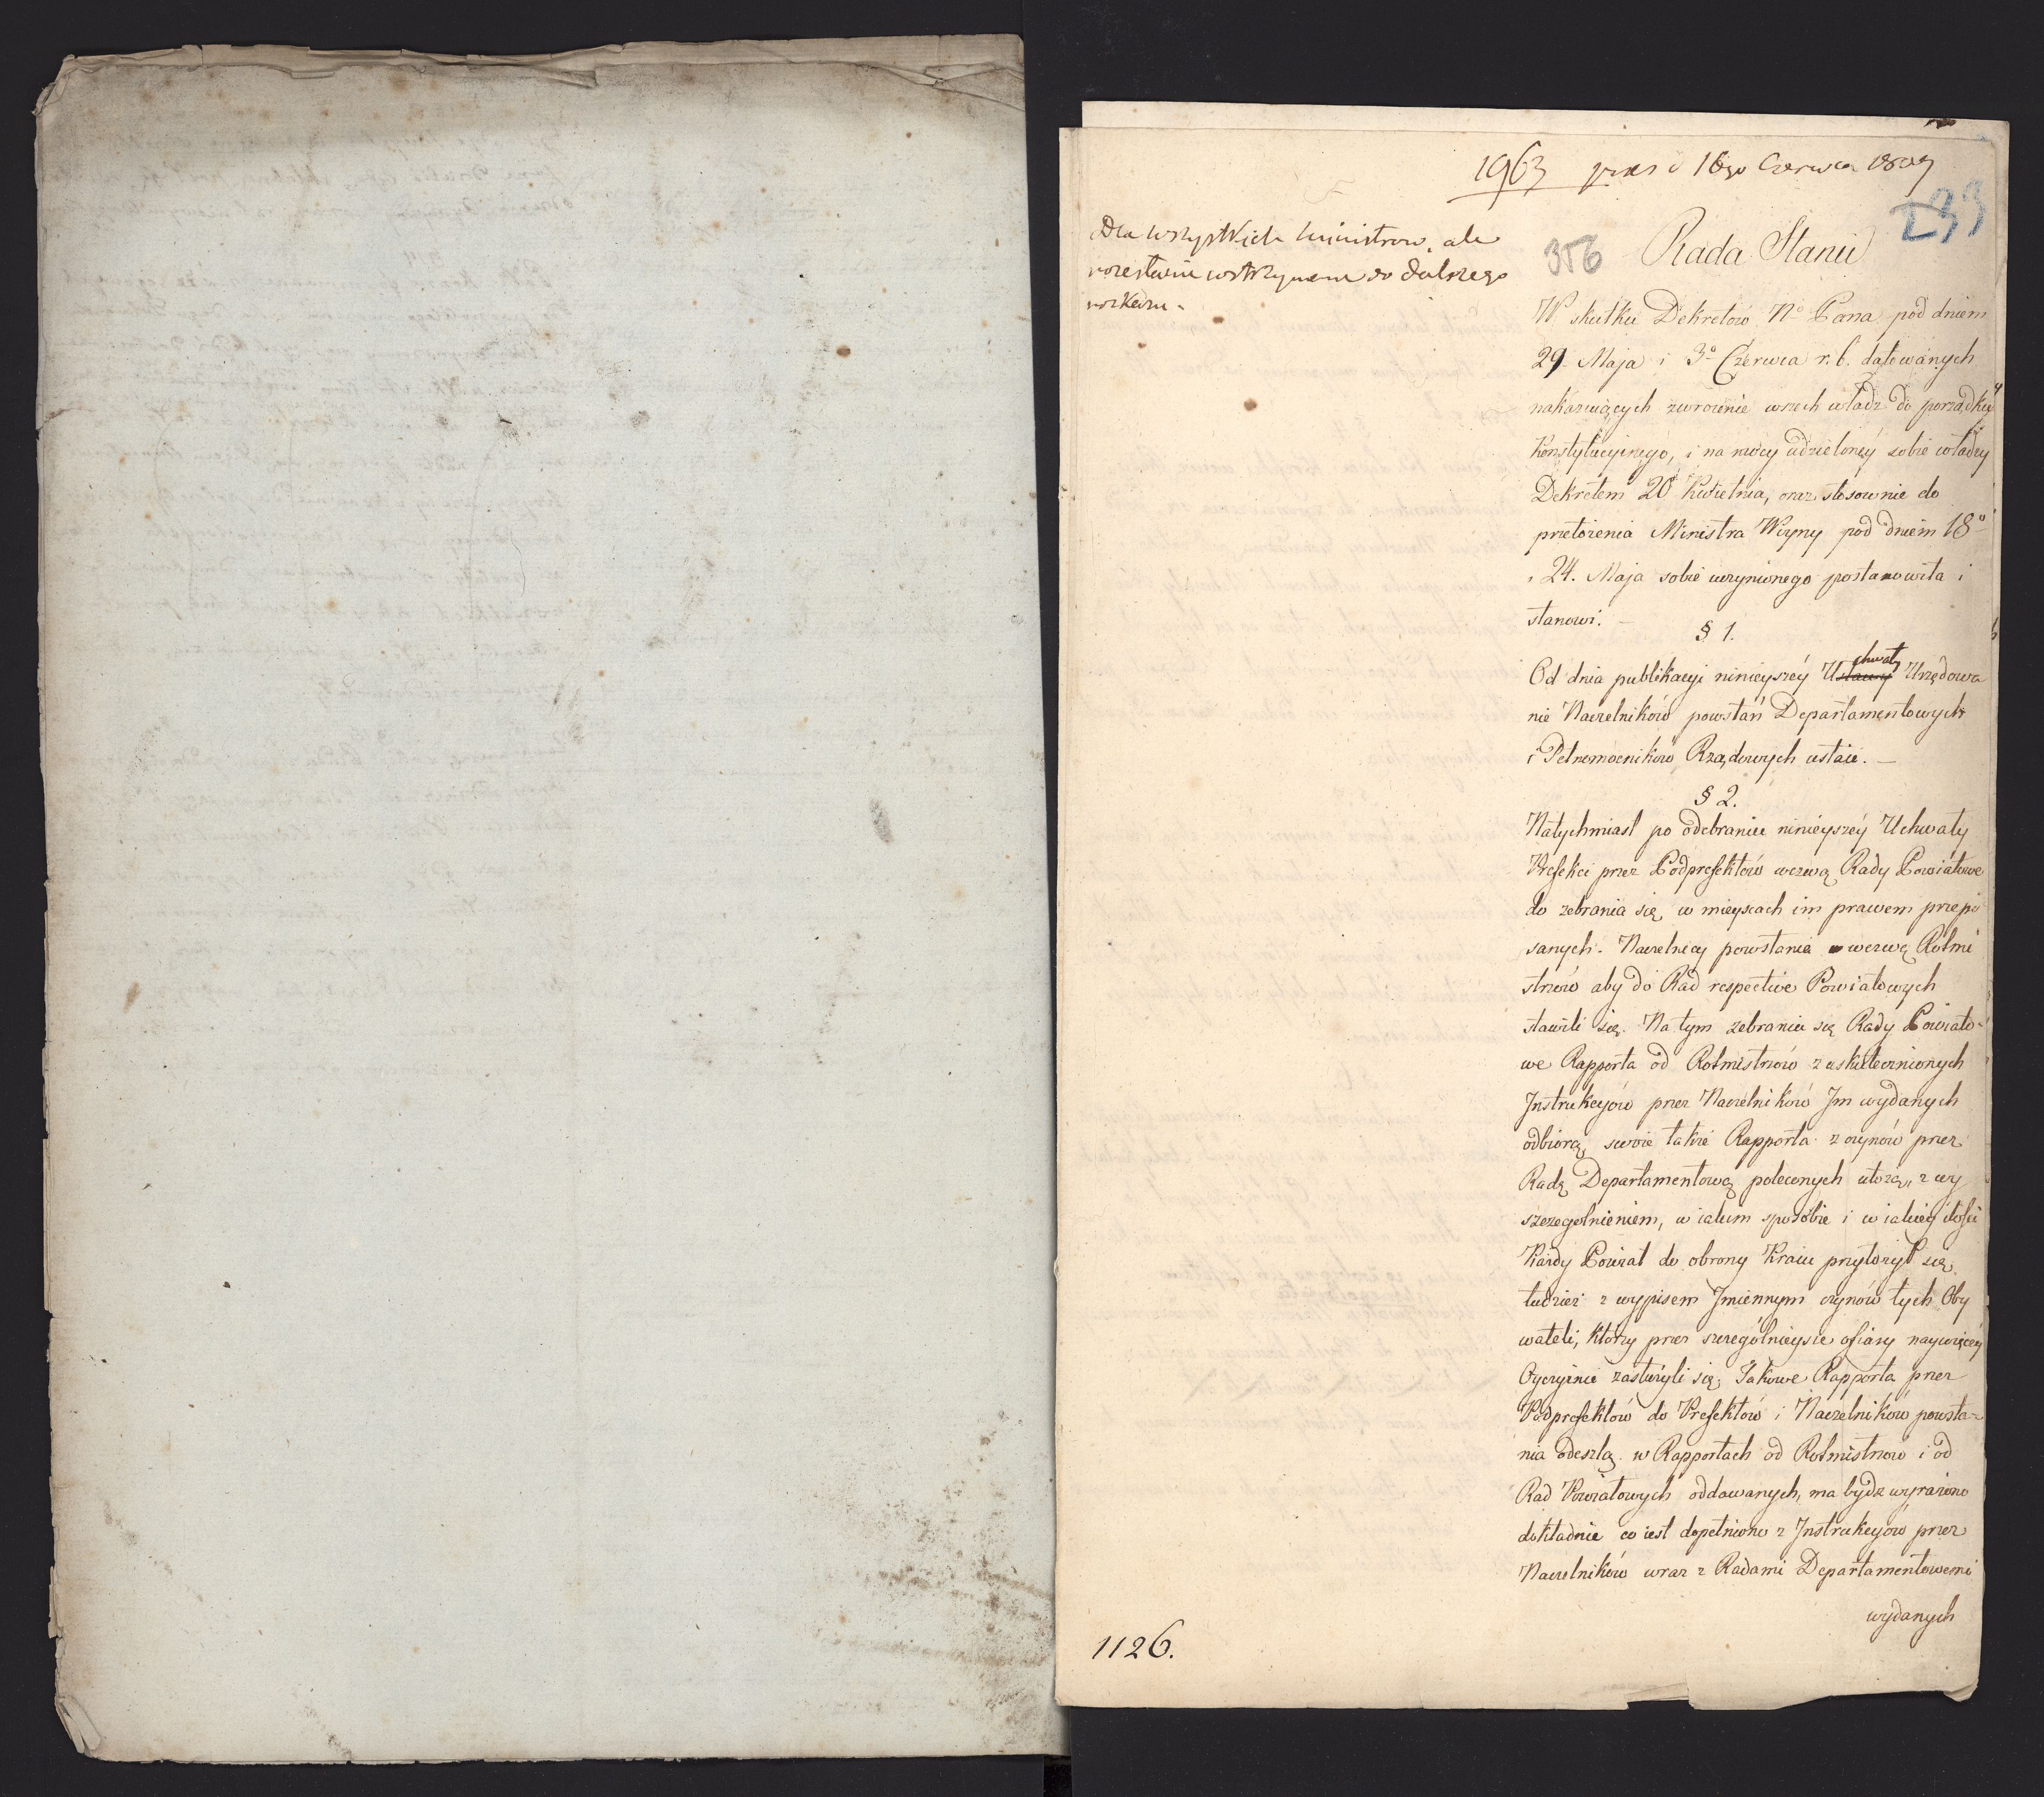 1963 pres d 16go Czerwca 1809
233
356
Dla wszystkich Ministrow, ale
rozesłanie wstrzymane do dalszego
rozkazu.
Rada Stanu
W skutku Dekretów No Pana pod dniem
29. Maja i 3o Czerwca r. b. datowanych
nakazuiących zwrócenie wszech władz do porządku
Konstytucyinego, i na mocy udzieloney sobie władzy
Dekretem 20 Kwietnia, oraz stosownie do
przełożenia Ministra Woyny pod dniem 18o
i 24. Maja sobie uczynionego postanowiła i
stanowi. —
§ 1.
Od dnia publikacyi ninieyszéy Uchwały Urzędowa
nie Naczelników powstań Departamentowych
i Pełnomocników Rządowych ustaie. —
§ 2.
Natychmiast po odebraniu ninieyszéy Uchwały
Prefekci przez Podprefektów wezwą Rady Powiatowe
do zebrania się w mieyscach im prawem przepi
sanych. Naczelnicy powstania wezwą Rotmi
strzów aby do Rad respective Powiatowych
stawili się. Na tym zebraniu się Rady Powiato-
we Rapporta od Rotmistrzów z uskutecznionych
Instrukcyów przez Naczelników Im wydanych
odbiorą, swoie także Rapporta z czynów przez
Radę Departamentową poleconych ułożą, z wy
szczególnieniem, w iakim sposobie i w iakiey ilości
Każdy Powiat do obrony Kraiu przyłożył się
tudzież z wypisem Imiennym czynów tych Oby
wateli, którzy przez szczególnieysze ofiary naywięcéy
Oyczyznie zasłużyli się. Takowe Rapporta przez
Podprefektów do Prefektów i Naczelników powsta-
nia odeszlą. w Rapportach od Rotmistrzów i od
Rad Powiatowych oddawanych, ma bydź wyrażono
dokładnie co iest dopełniono z Instrukcyów przez
Naczelników wraz z Radami Departamentowemi
wydanych
1126.